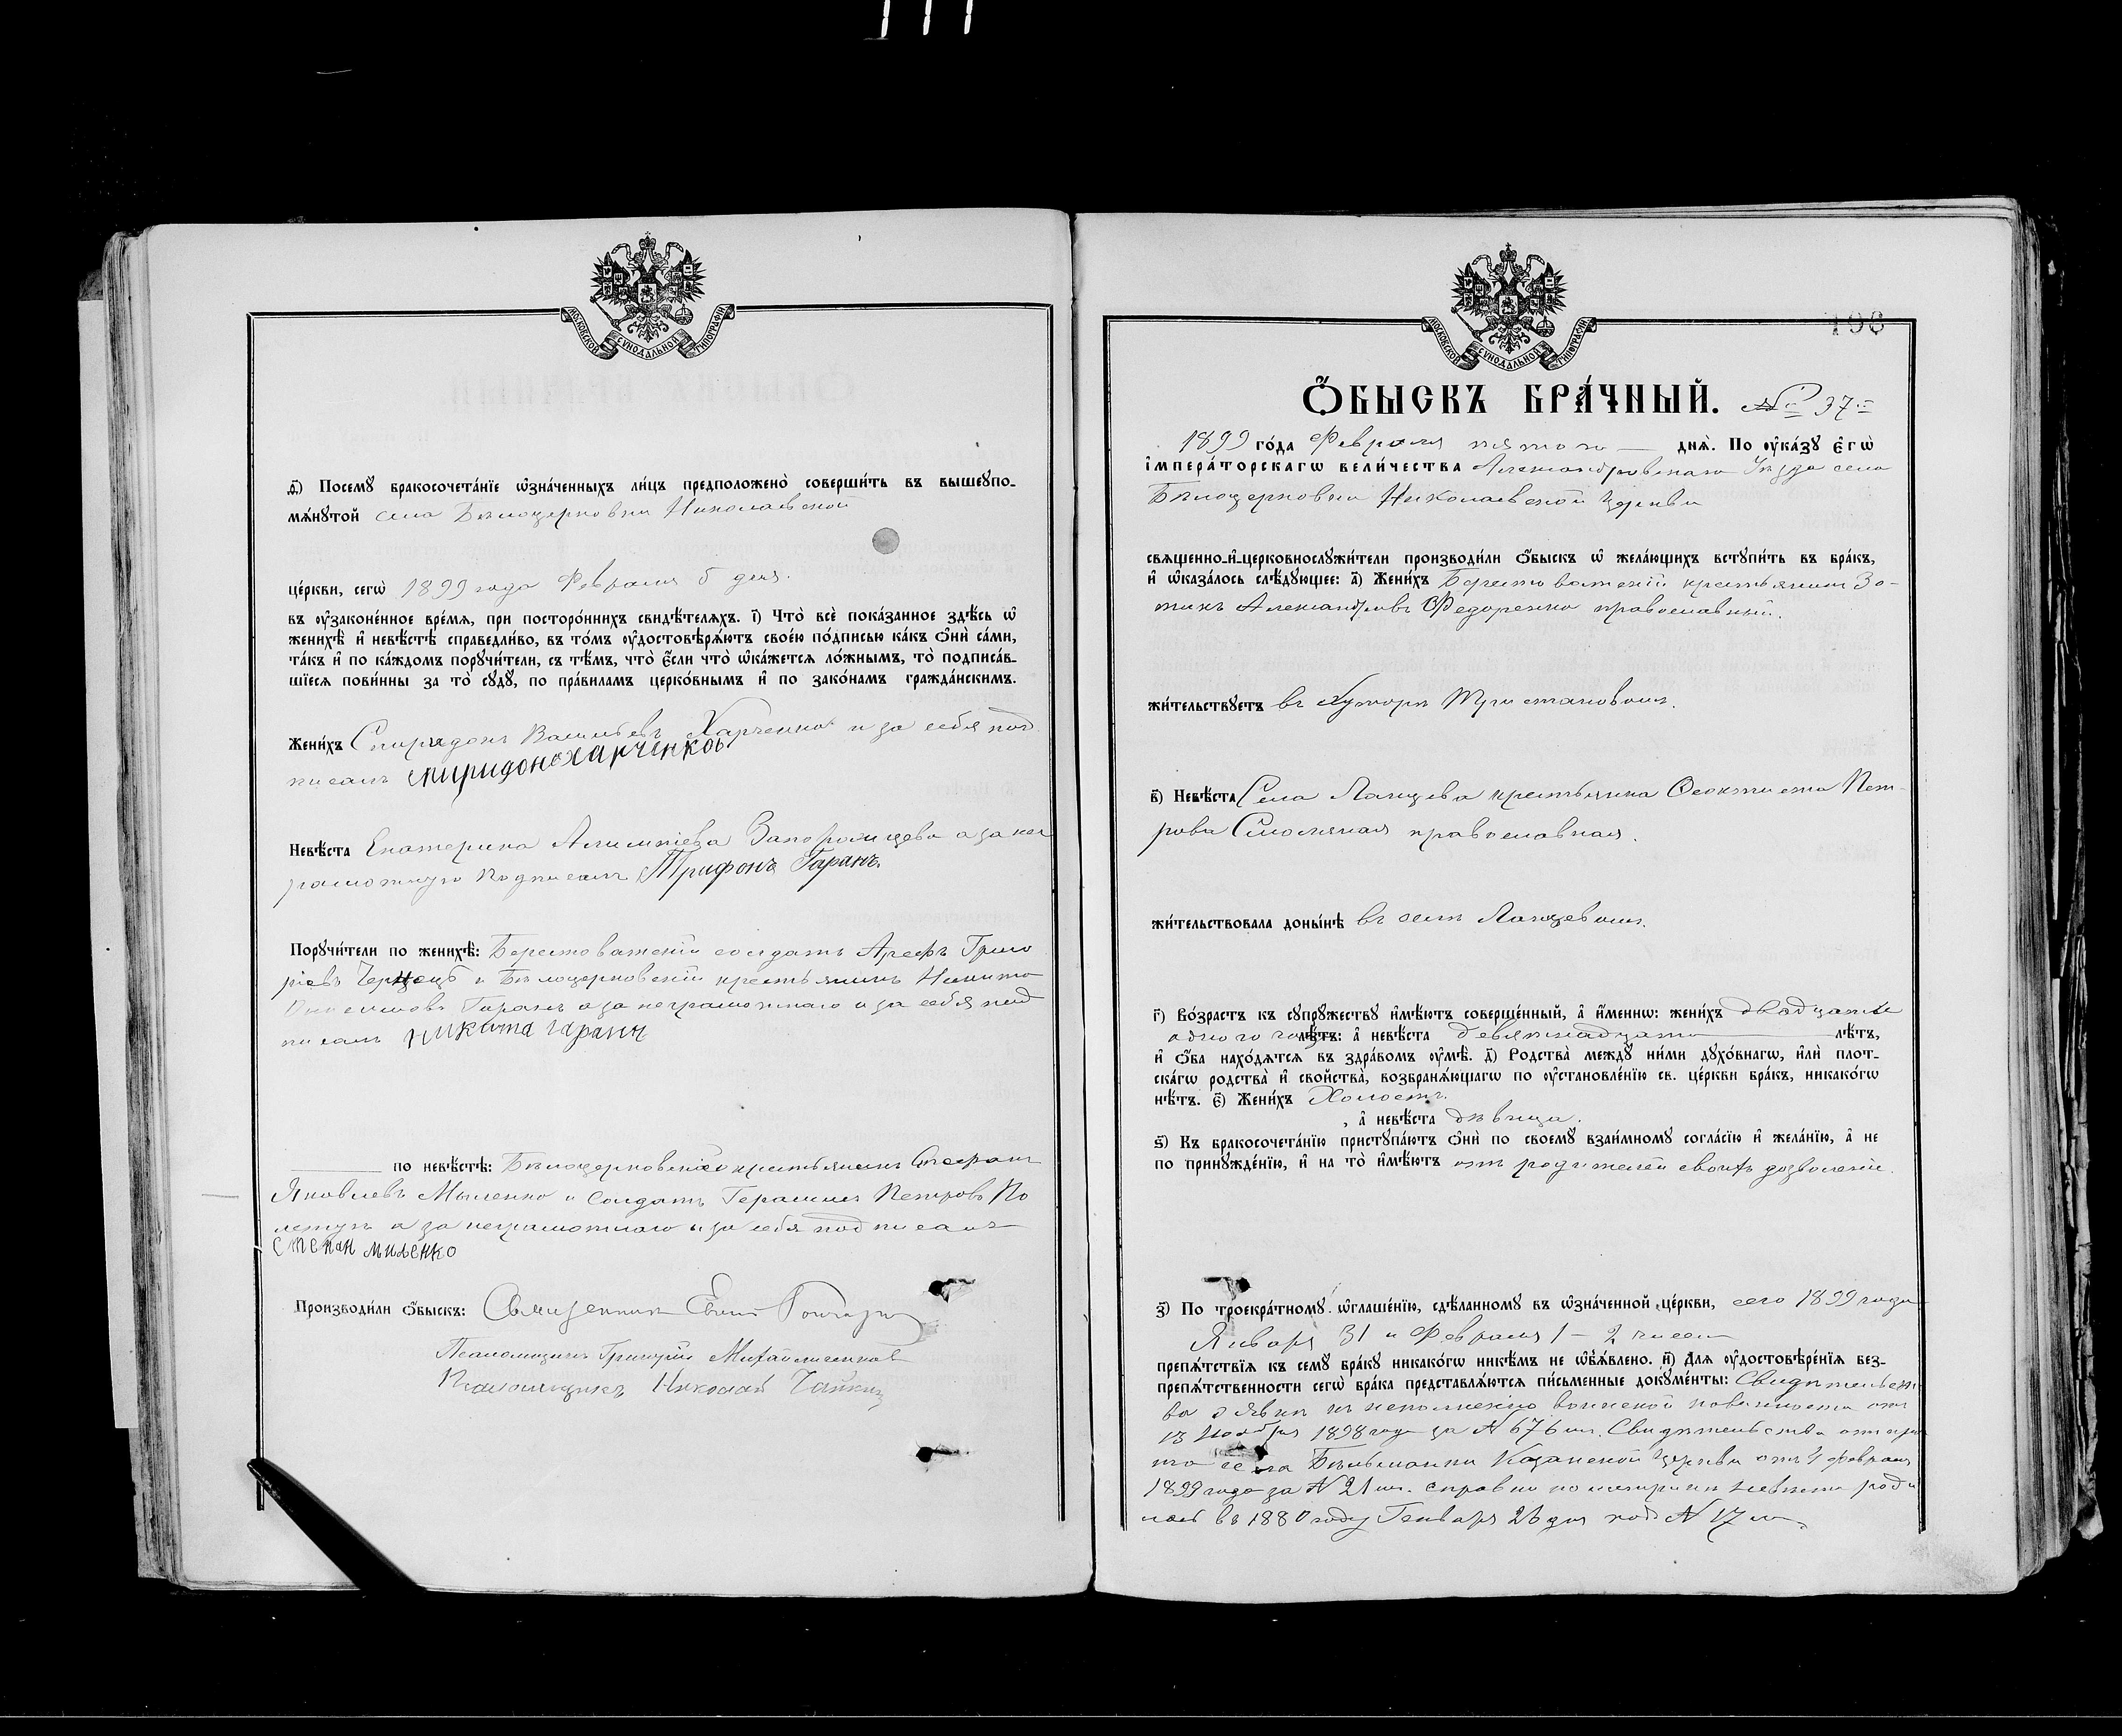 МОСКОВСКОЙ СѴНОДАЛЬНОЙ ТИПОГРАФІИ
ѳ҃) Посемꙋ бракосочета́нїе ѡ҆зна́ченныхъ ли́цъ предположено̀ соверши́ть въ вышеꙋпо-
мѧ́нꙋтой села Бѣлоцерковки Николаевской
це́ркви, сегѡ̀ 1899 года Февраля 5 дня.
въ ᲂу҆зако́ненное вре́мѧ, при посторо́ннихъ свидѣ́телѧхъ. і҃) Что̀ всѐ пока́занное здѣ́сь ѡ҆
женихѣ̀ и҆ невѣ́стѣ справедли́во, въ то́мъ ᲂу҆достовѣрѧ́ютъ свое́ю по́дписью ка́къ ѻ҆нѝ са́ми,
та́къ и҆ по ка́ждомъ порꙋчи́тели, съ тѣ́мъ, что̀ є҆́сли что̀ ѡ҆ка́жетсѧ ло́жнымъ, то̀ подписа́в-
шїесѧ пови́нны за то̀ сꙋдꙋ̀, по пра́виламъ церко́внымъ и҆ по зако́намъ гражда́нскимъ.
Жени́хъ Спиридонъ Васильевъ Харченко и за себя под
писалъ Спиридонъ Харченков
Невѣ́ста Екатерина Алимпіева Запорожцева а за не
грамотную подписалъ Трифонъ Гаранъ.
Порꙋчи́тели по женихѣ̀: Берестоватскій солдатъ Арефъ Григо
ріевъ Чернецъ и Бѣлоцерковскій крестьянинъ Никита
Гаранъ а за неграмотнаго и за себя под
писалъ Никита Гаранъ
по невѣ́стѣ: Бѣлоцерковскіе крестьянинъ Стефанъ
Яковлевъ Мыленко и солдатъ Герасимъ Петровъ По
а за неграмотнаго и за себя подписалъ
Степан Миленко
Производи́ли ѻ҆́быскъ: Священникъ Гончаровъ
Псаломщикъ Григорій
Псаломщикъ Николай Чайкинъ
МОСКОВСКОЙ СѴНОДАЛЬНОЙ ТИПОГРАФІИ
196
Ѻ҆́БЫСКЪ БРА́ЧНЫЙ. № 37-й
1899 го́да Февраля пятаго днѧ̀. По ᲂу҆ка́зꙋ є҆гѡ̀
і҆мпера́торскагѡ вели́чества Александровскаго Уѣзда села
Бѣлоцерковки Николаевской Церкви
свѧщенно-и҆-церковнослꙋжи́тели производи́ли ѻ҆́быскъ ѡ҆ жела́ющихъ встꙋпи́ть въ бра́къ,
и҆ ѡ҆каза́лось слѣ́дꙋющее: а҃) Жени́хъ Берестоватскій крестьянинъ Зо-
тикъ Александровъ Федоренко православный.
жи́тельствꙋетъ въ Хуторѣ Тристановомъ.
в҃) Невѣ́ста Села Ланцева крестьянка Феоктиста Пет-
рова Смоляная православная.
жи́тельствовала доны́нѣ въ селѣ Ланцевомъ.
г҃) Во́зрастъ къ сꙋпрꙋ́жествꙋ и҆мѣ́ютъ соверше́нный, а҆ и҆́меннѡ: жени́хъ двадцати
одного лѣ́тъ: а҆ невѣ́ста девятнадцати лѣ́тъ,
и҆ ѻ҆́ба нахо́дѧтсѧ въ здра́вомъ ᲂу҆мѣ̀. д҃) Родства̀ междꙋ̀ ни́ми дꙋхо́внагѡ, и҆лѝ плот-
ска́гѡ родства̀ и҆ сво́йства̀, возбранѧ́ющагѡ по ᲂу҆становле́нїю св. це́ркви бра́къ, никако́гѡ
нѣ́тъ. є҃) Жени́хъ Холостъ.
, а҆ невѣ́ста дѣвица.
ѕ҃) Къ бракосочета́нїю пристꙋпа́ютъ ѻ҆нѝ по своемꙋ̀ взаи́мномꙋ согла́сїю и҆ жела́нїю, а҆ не
по принꙋжде́нїю, и҆ на то̀ и҆мѣ́ютъ отъ родителей своихъ дозволеніе.
з҃) По троекра́тномꙋ ѡ҆глаше́нїю, сдѣ́ланномꙋ въ ѡ҆зна́ченной це́ркви, сего 1899 года
Января 31 и Февраля 1 - 2 чиселъ
препѧ́тствїѧ къ семꙋ̀ бра́кꙋ никако́гѡ никѣ́мъ не ѡ҆б̾ѧ́влено. и҃) Длѧ ᲂу҆достовѣре́нїѧ без-
препѧ́тственности сегѡ̀ бра́ка представлѧ́ютсѧ пи́сьменные докꙋме́нты: Свидѣтельст
во о явкѣ къ исполненію воинской повинности отъ
13 Ноября 1898 года за № 676 мъ. Свидѣтельства
села Бѣльманки Казанской Церкви отъ 4 февраля
1899 года за № 21 мъ. справки по метрикѣ невѣста роди
лась въ 1880 году Генваря 26 дня под № 17 мъ.